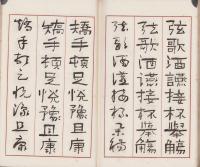 弦歌酒讌接杯舉觴
弦歌酒讌接杯舉觴
弦歌酒讌接杯舉觴
矯手頓足悅豫且康
矯手頓足悅豫且康
矯手頓足悅豫且康